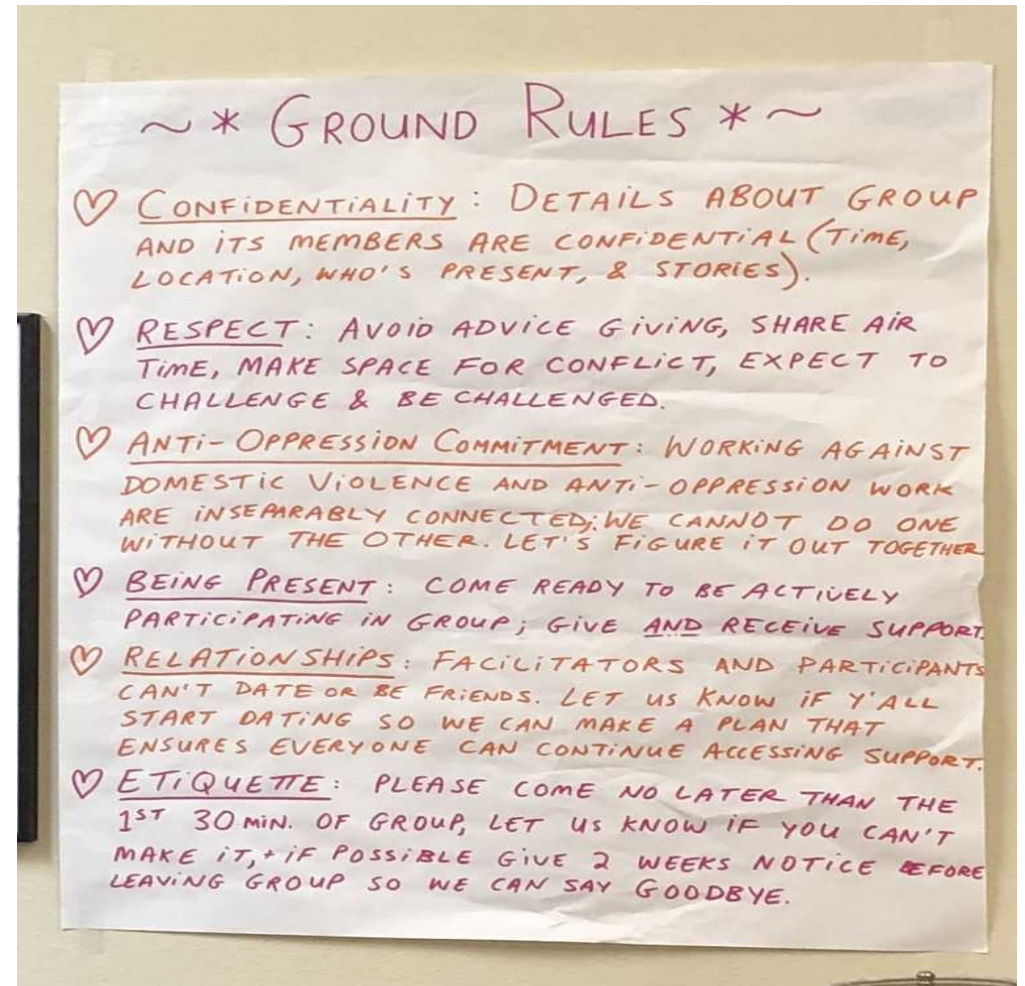 ~ * GROUND RULES * ~
♡ CONFiDENTiALiTY : DETAiLS ABOUT GROUP
AND iTS MEMBERS ARE CONFiDENTiAL (TiME,
LOCATiON, WHO'S PRESENT, & STORiES).
♡ RESPECT : AVOiD ADViCE GiViNG, SHARE AiR
TiME, MAKE SPACE FOR CONFLiCT, EXPECT TO
CHALLENGE & BE CHALLENGED.
♡ ANTi-OPPRESSiON COMMiTMENT : WORKiNG AGAiNST
DOMESTiC ViOLENCE AND ANTi-OPPRESSiON WORK
ARE iNSEPARABLY CONNECTED; WE CANNOT DO ONE
WiTHOUT THE OTHER. LET'S FiGURE iT OUT TOGETHER
♡ BEiNG PRESENT : COME READY TO BE ACTiVELY
PARTiCiPATiNG iN GROUP; GiVE AND RECEiVE SUPPORT.
♡ RELATiONSHiPS : FACiLiTATORS AND PARTiCiPANTS
CAN'T DATE OR BE FRiENDS. LET US KNOW iF Y'ALL
START DATiNG SO WE CAN MAKE A PLAN THAT
ENSURES EVERYONE CAN CONTiNUE ACCESSiNG SUPPORT.
♡ ETiQUETTE : PLEASE COME NO LATER THAN THE
1ST 30 MiN. OF GROUP, LET US KNOW iF YOU CAN'T
MAKE iT, + iF POSSiBLE GiVE 2 WEEKS NOTiCE BEFORE
LEAViNG GROUP SO WE CAN SAY GOODBYE.